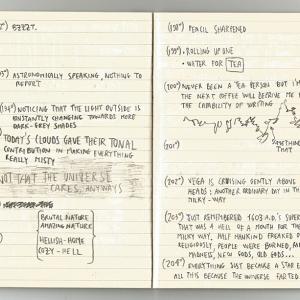 BZZZT.
ASTRONOMICALLY SPEAKING, NOTHING TO
REPORT
(134°) NOTICING THAT THE LIGHT OUTSIDE IS
CONSTANTLY CHANGING TOWARDS MORE
DARK-GREY SHADES
TODAY'S CLOUDS GAVE THEIR TONAL
CONTRIBUTION IN MAKING EVERYTHING
REALLY MISTY
NOT THAT THE UNIVERSE
CARES, ANYWAYS
BRUTAL NATURE
AMAZING NATURE
HELLISH-HOME
COZY-HELL
PENCIL SHARPENED
• ROLLING UP ONE
• WATER FOR TEA
NEVER BEEN A TEA PERSON BUT
THE NEXT COFFEE WILL DEPRIVE ME
THE CAPABILITY OF WRITING
(201°)
(202°) VEGA IS CRUISING GENTLY ABOVE
HEADS: ANOTHER ORDINARY DAY IN TH
MILKY-WAY
(203°) JUST REMEMBERED 1603 A.D.'S SUPER
THAT WAS A HELL OF A MONTH FOR THE
MILKY WAY, HALF HUMANKIND FREAKED
RELIGIOUSLY, PEOPLE WERE BURNED,
MADNESS, NEW GODS, OLD GODS...
(204°) EVERYTHING JUST BECAUSE A STAR
ALL THIS BECAUSE THE UNIVERSE FARTED.